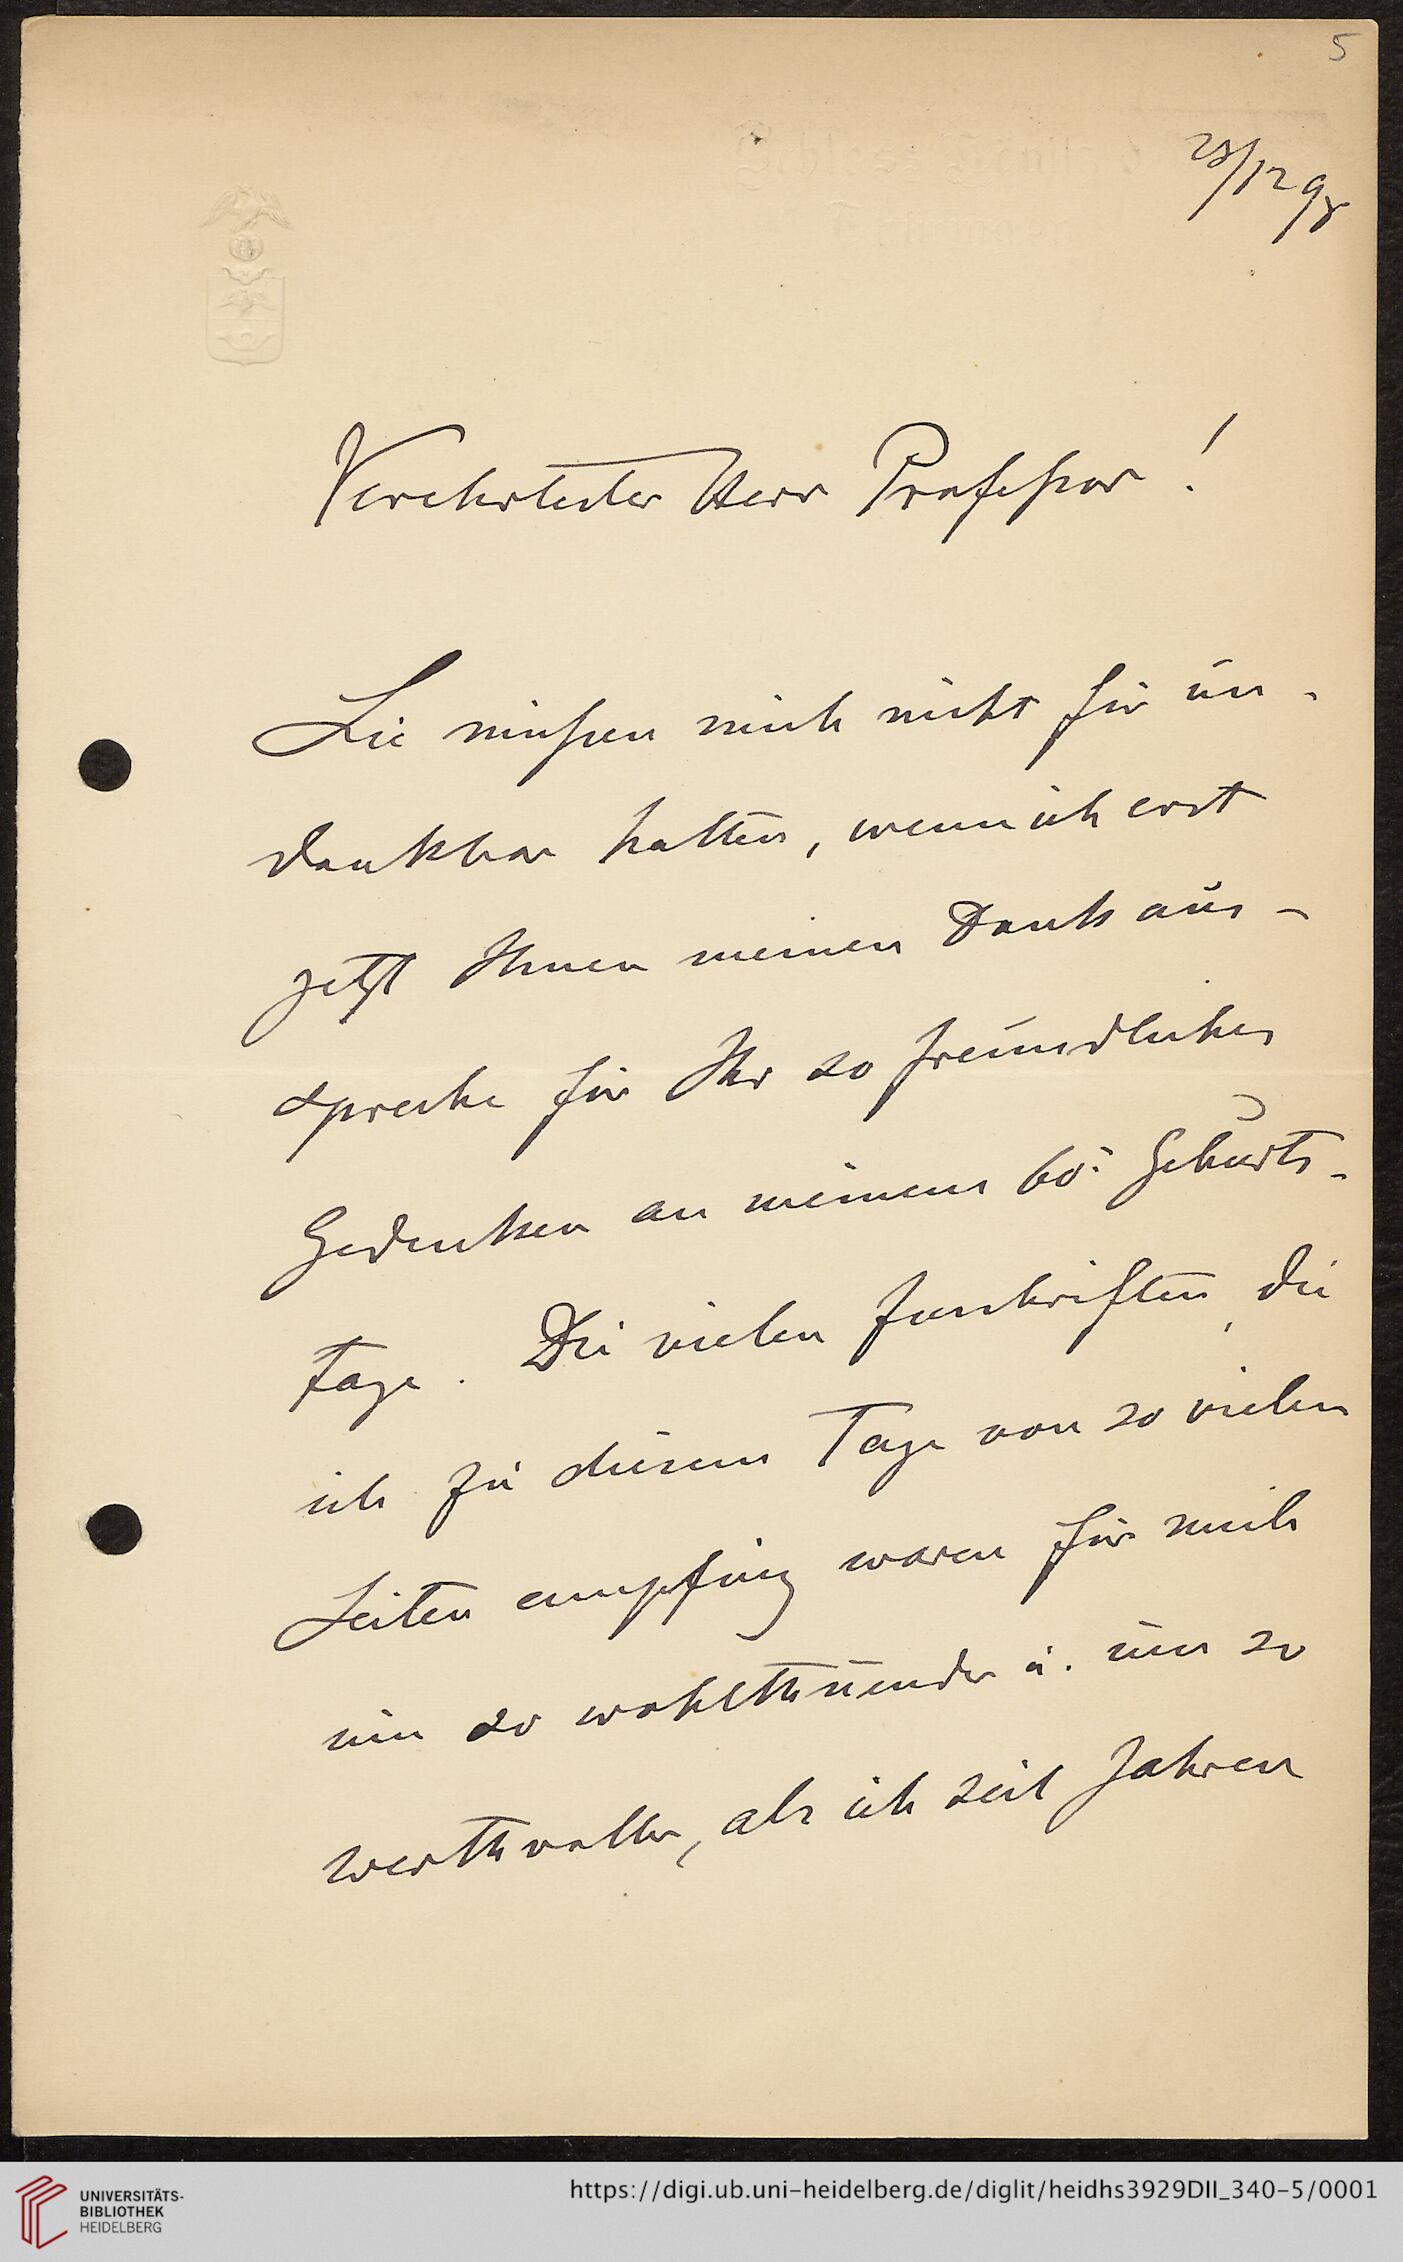 5
28/12 98
Verehrtester Herr Professor!
Sie müssen mich nicht für un-
dankbar halten, wenn ich erst
jetzt Ihnen meinen Dank aus-
spreche für Ihr so freundliches
Gedenken an meinem 60. Geburts-
tage. Die vielen Zuschriften, die
ich zu diesem Tage von so vielen
Seiten empfing waren für mich
um so wohlthuender u. um so
werthvoller, als ich seit Jahren
UNIVERSITÄTS-
BIBLIOTHEK
HEIDELBERG
https://digi.ub.uni-heidelberg.de/diglit/heidhs3929DII_340-5/0001